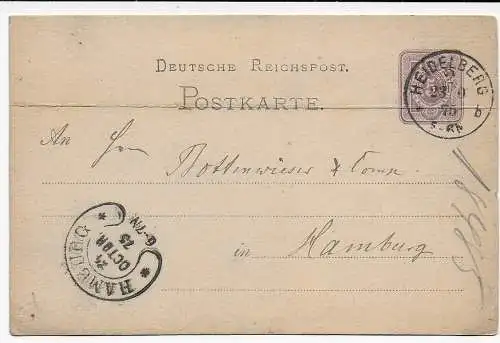 DEUTSCHE REICHSPOST.
POSTKARTE.
HEIDELBERG
23 10
75
5-6N
b
An Hrn Bottenwieser & Comp.
in Hamburg
HAMBURG
24
OCTBR
75
6-7N